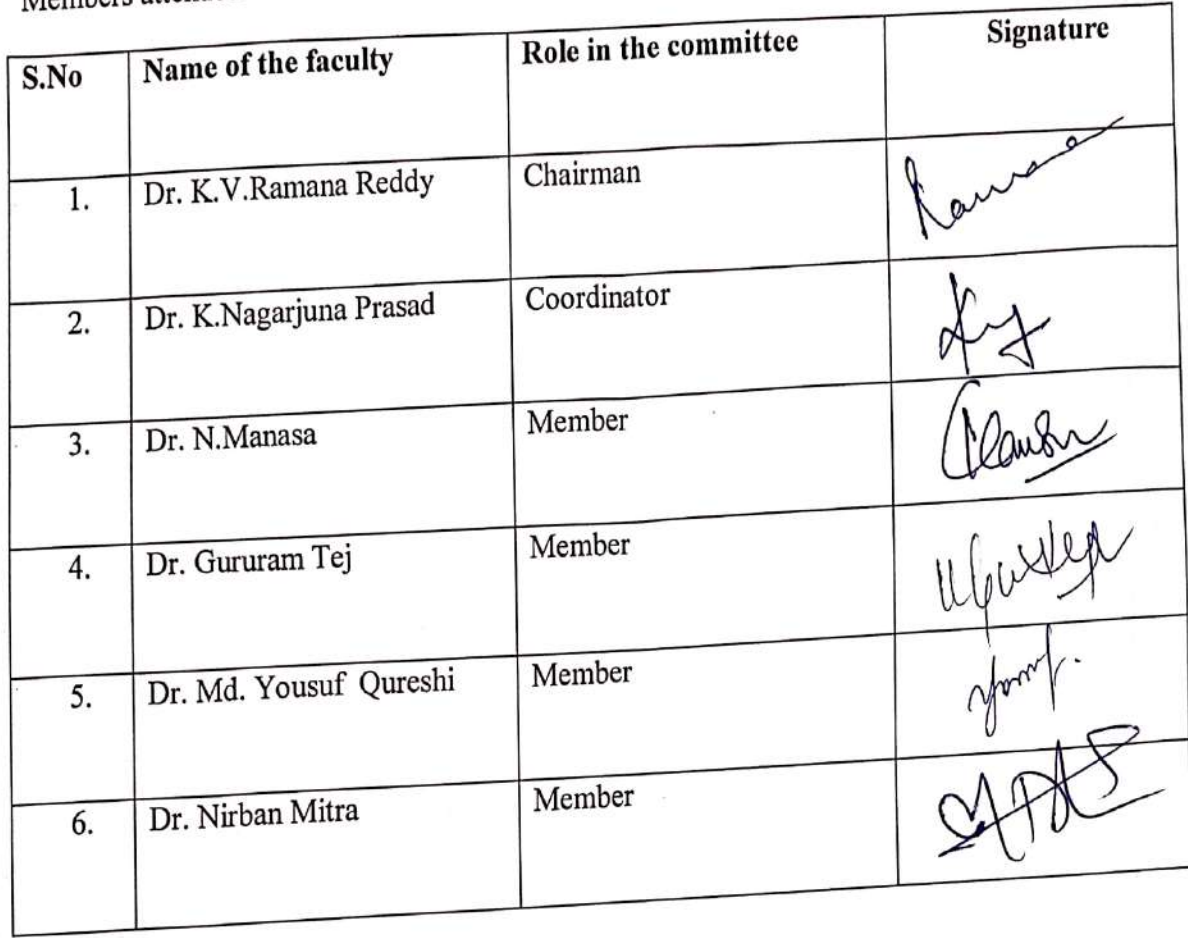 Members
S.No Name of the faculty Role in the committee Signature
1. Dr. K.V.Ramana Reddy Chairman
2. Dr. K.Nagarjuna Prasad Coordinator
3. Dr. N.Manasa Member
4. Dr. Gururam Tej Member
5. Dr. Md. Yousuf Qureshi Member
6. Dr. Nirban Mitra Member